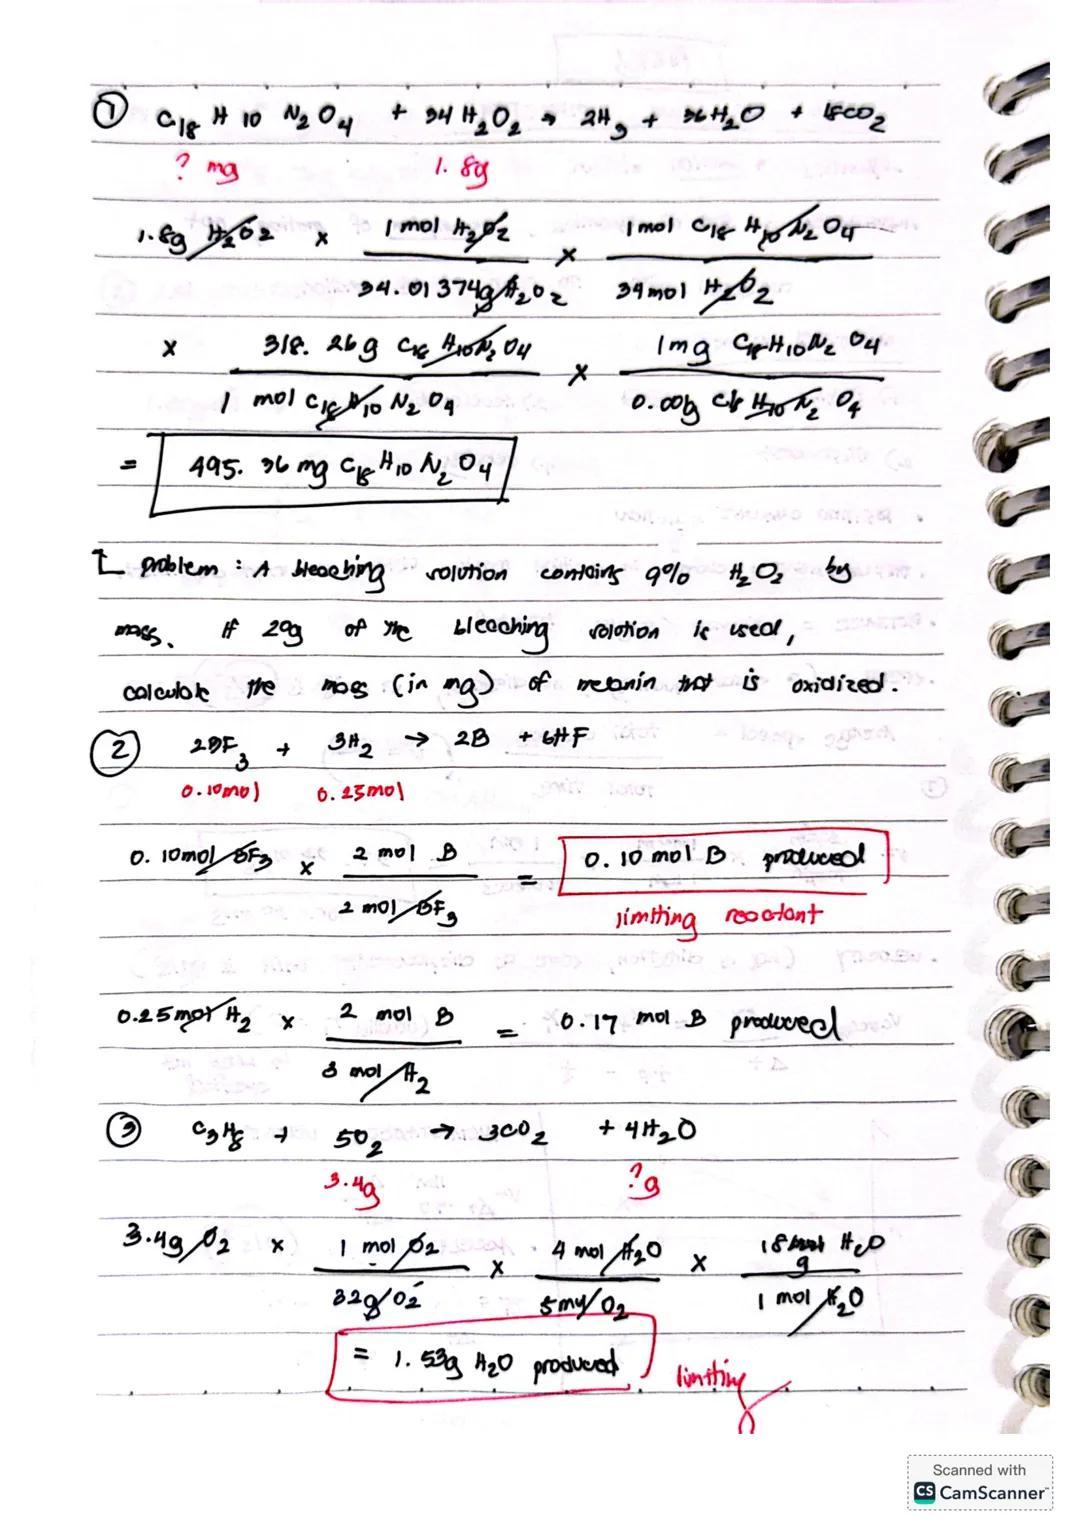 ① C18 H 10 N2O4 + 34 H2O2 → 2H3 + 36H2O + 18CO2
? mg 1.8g
1.8g H2O2 x 1 mol H2O2 x 1 mol C18 H10 N2O4
34.01374g H2O2 34 mol H2O2
x 318.26g C18 H10N2O4 x 1mg C18H10N2O4
1 mol C18H10N2O4 0.001g C18H10N2O4
= 495.36 mg C18H10N2O4
problem : A bleaching solution contains 9% H2O2 by
mass. If 20g of the bleaching solution is used,
calculate the mass (in mg) of melanin that is oxidized.
② 2BF3 + 3H2 → 2B + 6HF
0.10mol 0.25mol
0.10mol BF3 x 2 mol B = 0.10 mol B produced
2 mol BF3 limiting reactant
0.25mol H2 x 2 mol B = 0.17 mol B produced
3 mol H2
③ C3H8 + 5O2 → 3CO2 + 4H2O
3.4g ?g
3.4g O2 x 1 mol O2 x 4 mol H2O x 18 g H2O
32g O2 5mol O2 1 mol H2O
= 1.53g H2O produced limiting
Scanned with
CS CamScanner